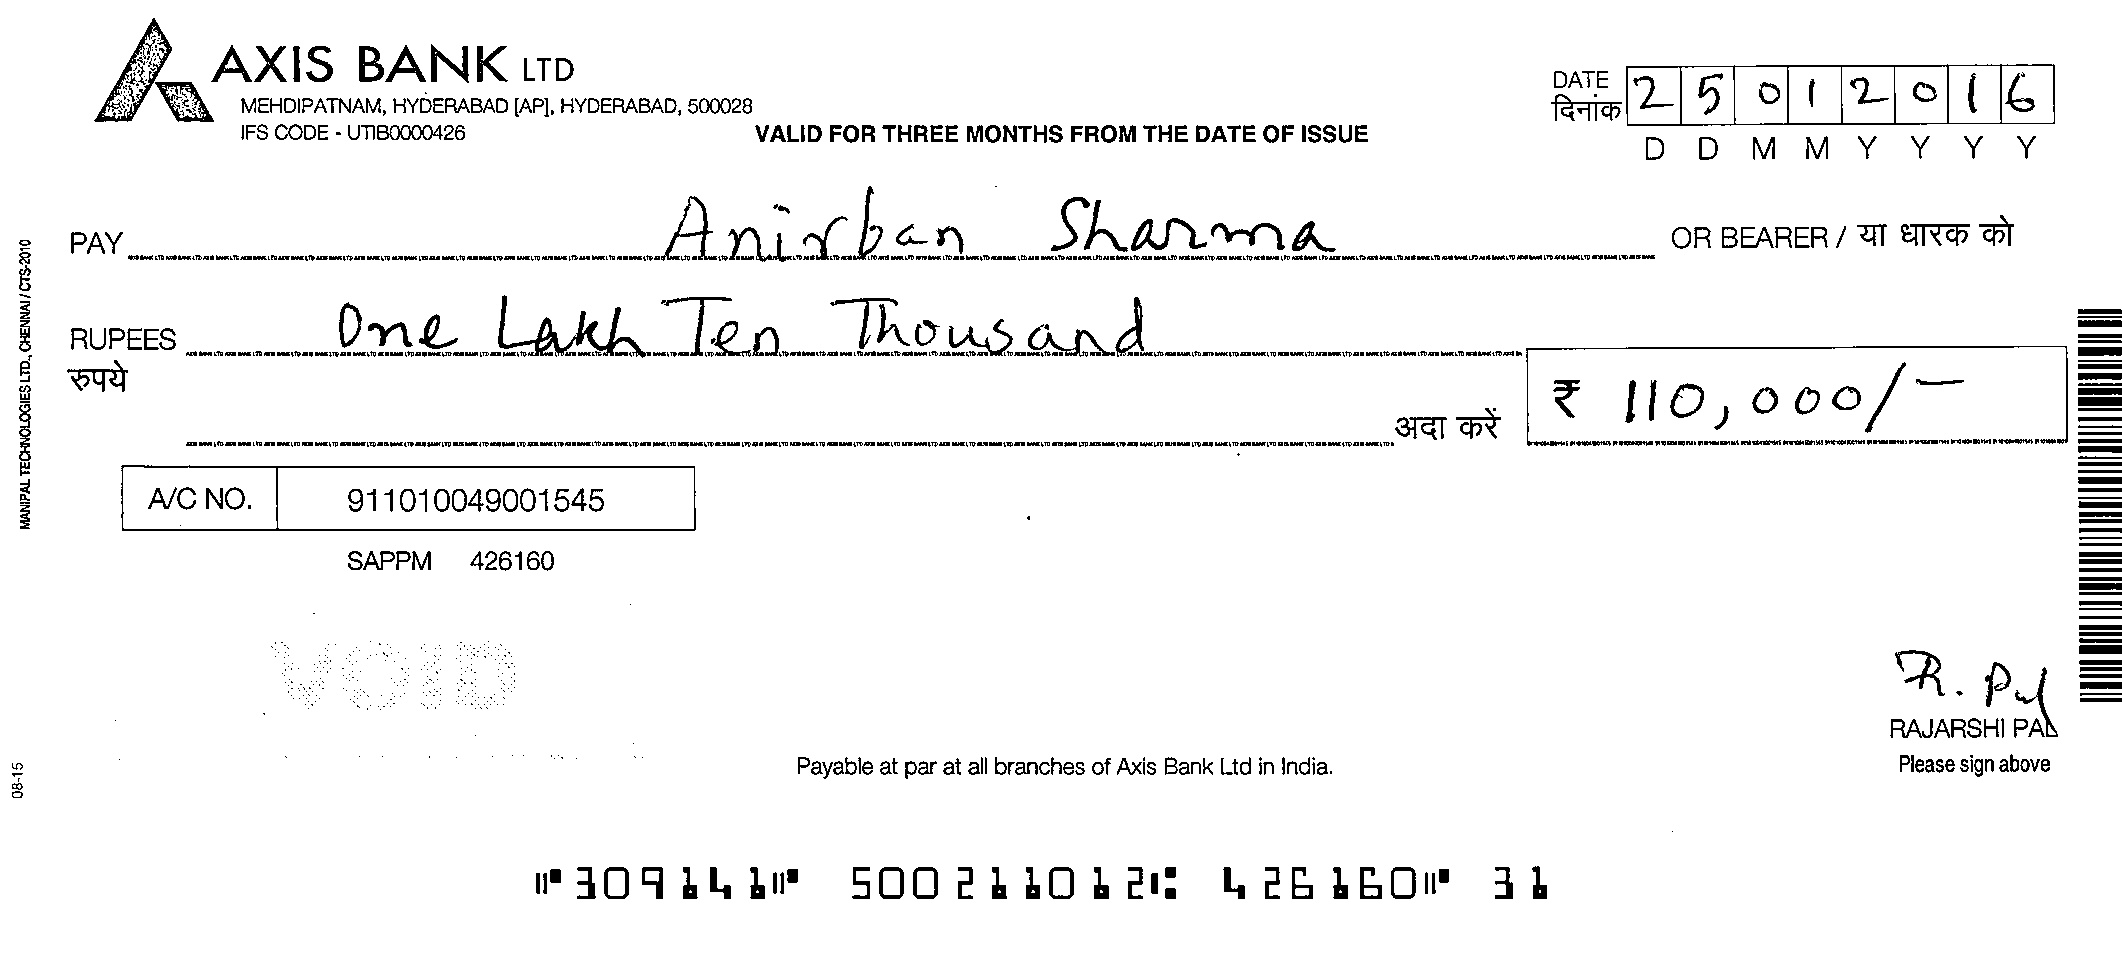 AXIS BANK LTD
MEHDIPATNAM, HYDERABAD [AP], HYDERABAD, 500028
IFS CODE - UTIB0000426
VALID FOR THREE MONTHS FROM THE DATE OF ISSUE
DATE
दिनांक
2 5 0 1 2 0 1 6
D D M M Y Y Y Y
PAY Anirban Sharma OR BEARER / या धारक को
RUPEES One Lakh Ten Thousand
रुपये
अदा करें
₹ 110,000/-
A/C NO. 911010049001545
SAPPM 426160
VOID
R. Pal
RAJARSHI PAL
Please sign above
Payable at par at all branches of Axis Bank Ltd in India.
⑈309141⑈ 500211012⑆ 426160⑈ 31
MANIPAL TECHNOLOGIES LTD., CHENNAI / CTS-2010
08-15